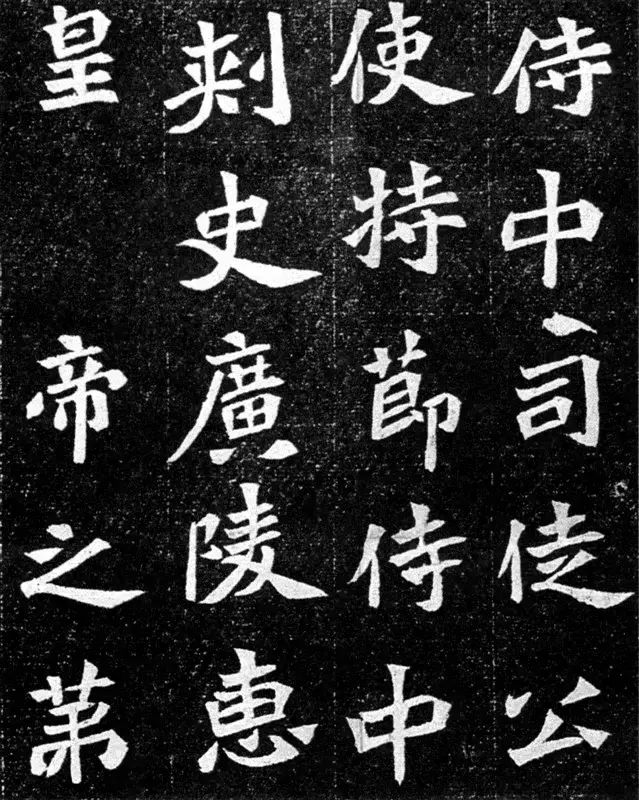 侍中司徒公
使持莭侍中
刺史廣陵惠
皇帝之苐